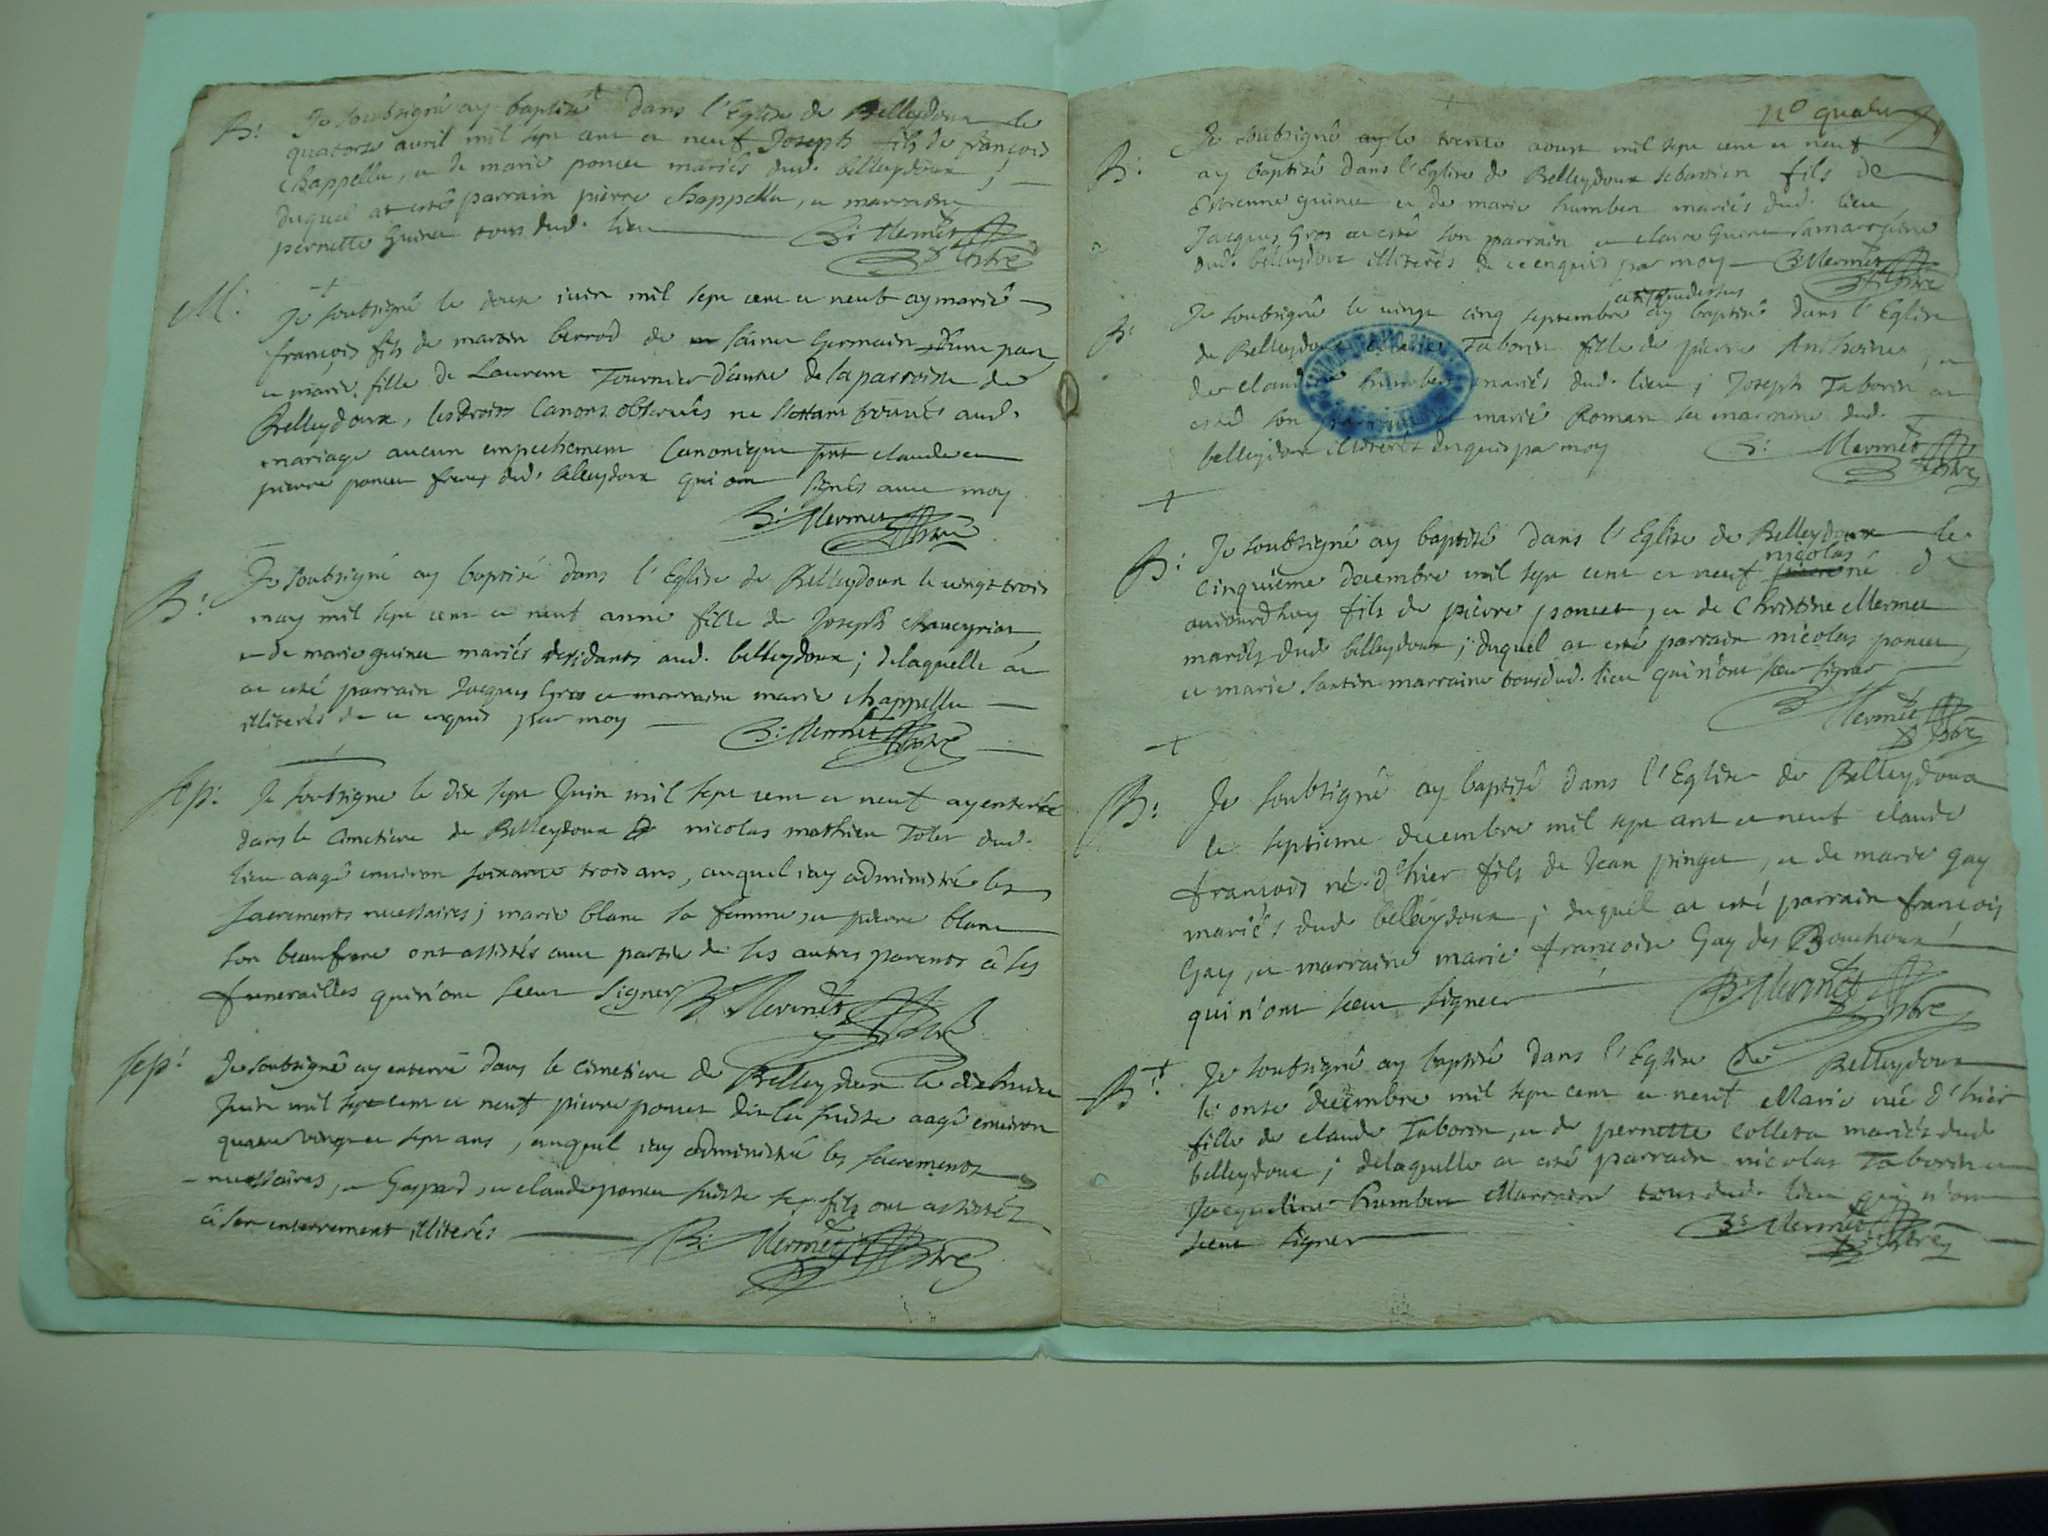 B: Je soubsigné ay baptisé dans l'Eglise de Belleydoux le
quatorze avril mil sept cent et neuf Joseph fils de françois
Chappellu, et de marie poncet mariés dud. belleydoux ;
duquel at esté parrain pierre chappellu, et marraine
pernette Guinet tous dud. lieu
B: Mermet pbre
M: Je soubsigné le deux iuin mil sept cent et neuf ay marié
françois fils de martin berrod de saint Germain d'une part
et marie fille de Laurent Tournier d'autre de la parroisse de
Belleydoux, les droits Canons observés ne s'estant trouvés aud.
mariage aucun empechement Canonique pnt claude et
pierre poncet freres dud. belleydoux qui ont signés avec moy
B: Mermet pbre
B: Je soubsigné ay baptisé dans l'Eglise de Belleydoux le vingt trois
may mil sept cent et neuf anne fille de Joseph
et de marie guinet mariés residants aud. belleydoux ; delaquelle at
at esté parrain Jacques Gros et marraine marie chappellu
illiterés de ce enquis par moy
B: Mermet pbre
sep: Je soubsigné le dix sept Juin mil sept cent et neuf ay enterré
dans le Cimetiere de Belleydoux nicolas mathieu Toler dud.
lieu aagé environ soixante trois ans, auquel i'ay administré les
sacrements necessaires ; marie blanc sa femme, et pierre blanc
son beaufrere ont assistés avec partie de ses autres parents à ses
funerailles qui n'ont sceu signer B: Mermet pbre
sep: Je soubsigné ay enterré dans le cimetiere de Belleydoux le dixhuit
Juin mil sept cent et neuf pierre poncet dit la suisse aagé environ
quatre vingt et sept ans, auquel i'ay administré les sacrements
necessaires, et Gaspard, et claude poncet suisse ses fils ont assistéz
à son enterrement illiterés
B: Mermet pbre
no quatre
B: Je soubsigné le trente aoust mil sept cent et neuf
ay baptisé dans l'Eglise de Belleydoux sebastien fils de
Estienne guinet et de marie humbert mariés dud. lieu
Jacques Gros at esté son parrain et claire Guinet sa marraine
dud. belleydoux illiterés de ce enquis par moy B: Mermet pbre
B: Je soubsigné le vingt cinq septembre an que dessus ay baptisé dans l'Eglise
de Belleydoux Taborin fille de pierre Anthoine, et
de claudine humbert mariés dud. lieu ; Joseph Taborin at
esté son parrain et marie Roman sa marraine dud.
belleydoux illiterés enquis par moy B: Mermet pbre
B: Je soubsigné ay baptisé dans l'Eglise de Belleydoux le
cinquième decembre mil sept cent et neuf nicolas né d'
auiourd'huy fils de pierre poncet, et de Christine Mermet
mariés dud belleydoux ; duquel at esté parrain nicolas poncet,
et marie santin marraine tous dud. lieu qui n'ont sceu signer
B: Mermet pbre
B: Je soubsigné ay baptisé dans l'Eglise de Belleydoux
le septieme decembre mil sept cent et neuf claude
françois né d'hier fils de Jean pinget, et de marie gay
mariés dud belleydoux ; duquel at esté parrain françois
Gay, et marraine marie françoise Gay des Bouchoux
qui n'ont sceu signer B: Mermet pbre
B: Je soubsigné ay baptisé dans l'Eglise de Belleydoux
le onze decembre mil sept cent et neuf Marie née d'hier
fille de claude Taborin, et de pernette colleta mariés dud
belleydoux ; delaquelle at esté parrain nicolas Taborin et
Jacqueline humbert Marraine tous dud. lieu qui n'ont
sceu signer B: Mermet pbre